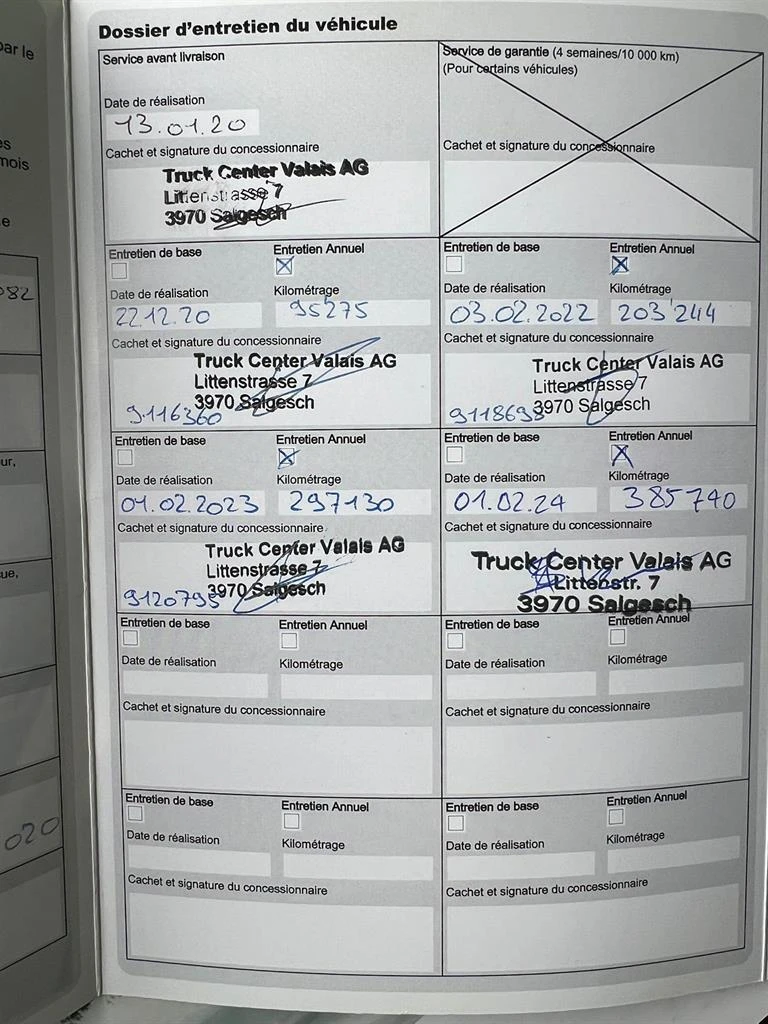 Dossier d'entretien du véhicule
Service avant livraison
Date de réalisation
13.01.20
Cachet et signature du concessionnaire
Truck Center Valais AG
Littenstrasse 7
3970 Salgesch
Service de garantie (4 semaines/10 000 km)
(Pour certains véhicules)
Cachet et signature du concessionnaire
Entretien de base
Entretien Annuel
Date de réalisation
Kilométrage
22.12.20
95'275
Cachet et signature du concessionnaire
Truck Center Valais AG
Littenstrasse 7
3970 Salgesch
9116360
Entretien de base
Entretien Annuel
Date de réalisation
Kilométrage
03.02.2022
203'244
Cachet et signature du concessionnaire
Truck Center Valais AG
Littenstrasse 7
3970 Salgesch
Entretien de base
Entretien Annuel
Date de réalisation
Kilométrage
01.02.2023
297130
Cachet et signature du concessionnaire
Truck Center Valais AG
Littenstrasse 7
3970 Salgesch
Entretien de base
Entretien Annuel
Date de réalisation
Kilométrage
01.02.24
385740
Cachet et signature du concessionnaire
Truck Center Valais AG
Littenstr. 7
3970 Salgesch
Entretien de base
Entretien Annuel
Date de réalisation
Kilométrage
Cachet et signature du concessionnaire
Entretien de base
Entretien Annuel
Date de réalisation
Kilométrage
Cachet et signature du concessionnaire
Entretien de base
Entretien Annuel
Date de réalisation
Kilométrage
Cachet et signature du concessionnaire
Entretien de base
Entretien Annuel
Date de réalisation
Kilométrage
Cachet et signature du concessionnaire